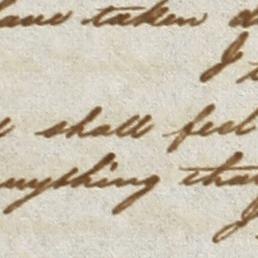 have taken
I
shall feel
anything that